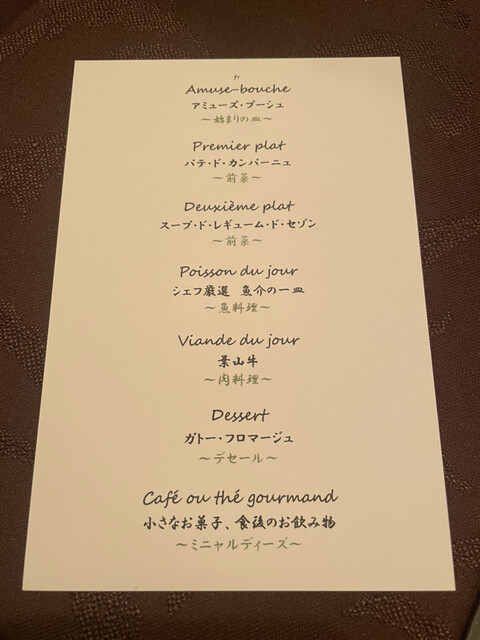 Amuse-bouche
アミューズ・ブーシュ
～始まりの皿～
Premier plat
パテ・ド・カンパーニュ
～前菜～
Deuxième plat
スープ・ド・レギューム・ド・セゾン
～前菜～
Poisson du jour
シェフ厳選 魚介の一皿
～魚料理～
Viande du jour
葉山牛
～肉料理～
Dessert
ガトー・フロマージュ
～デセール～
Café ou thé gourmand
小さなお菓子、食後のお飲み物
～ミニャルディーズ～